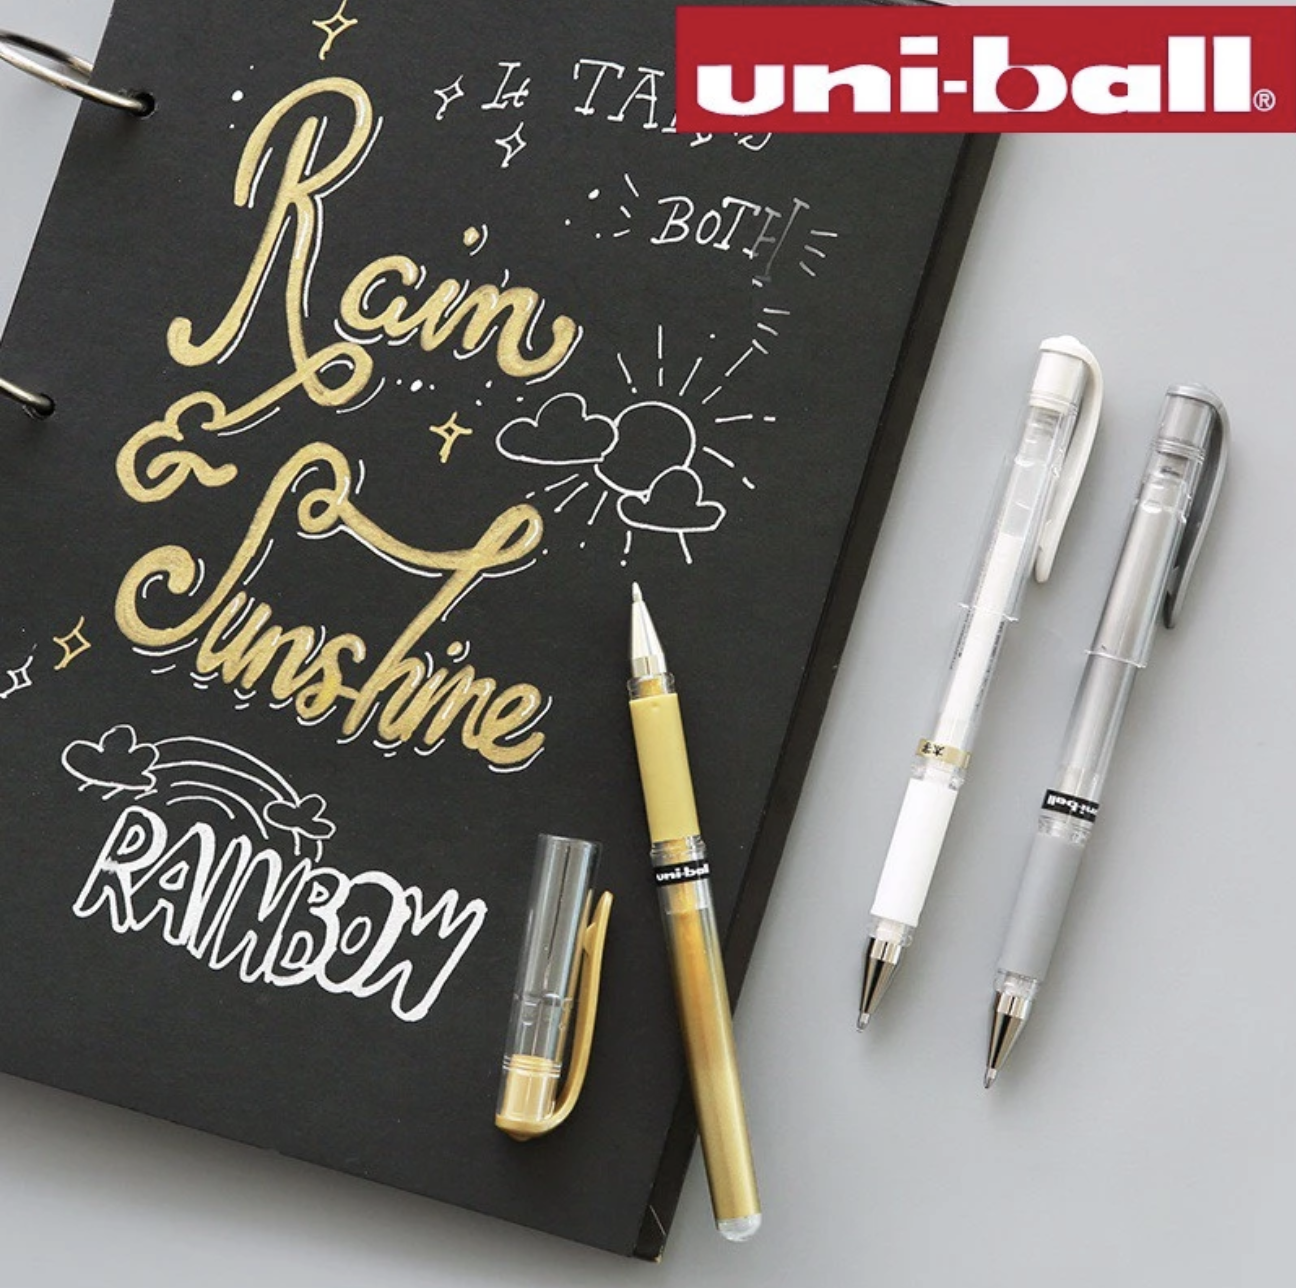 uni-ball®
It
BOTH
Rain
&
Sunshine
RAINBOW
uni-ball
太字
uni-ball